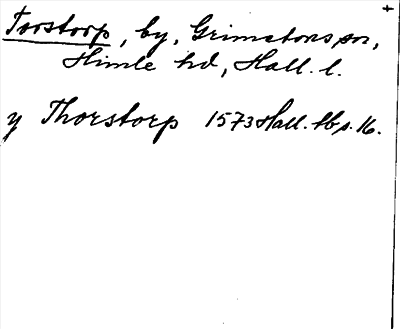 Torstorp, by, Grimetons sn,
Himle hd, Hall. l.
y Thorstorp 1573 Hall. tb s. 16.